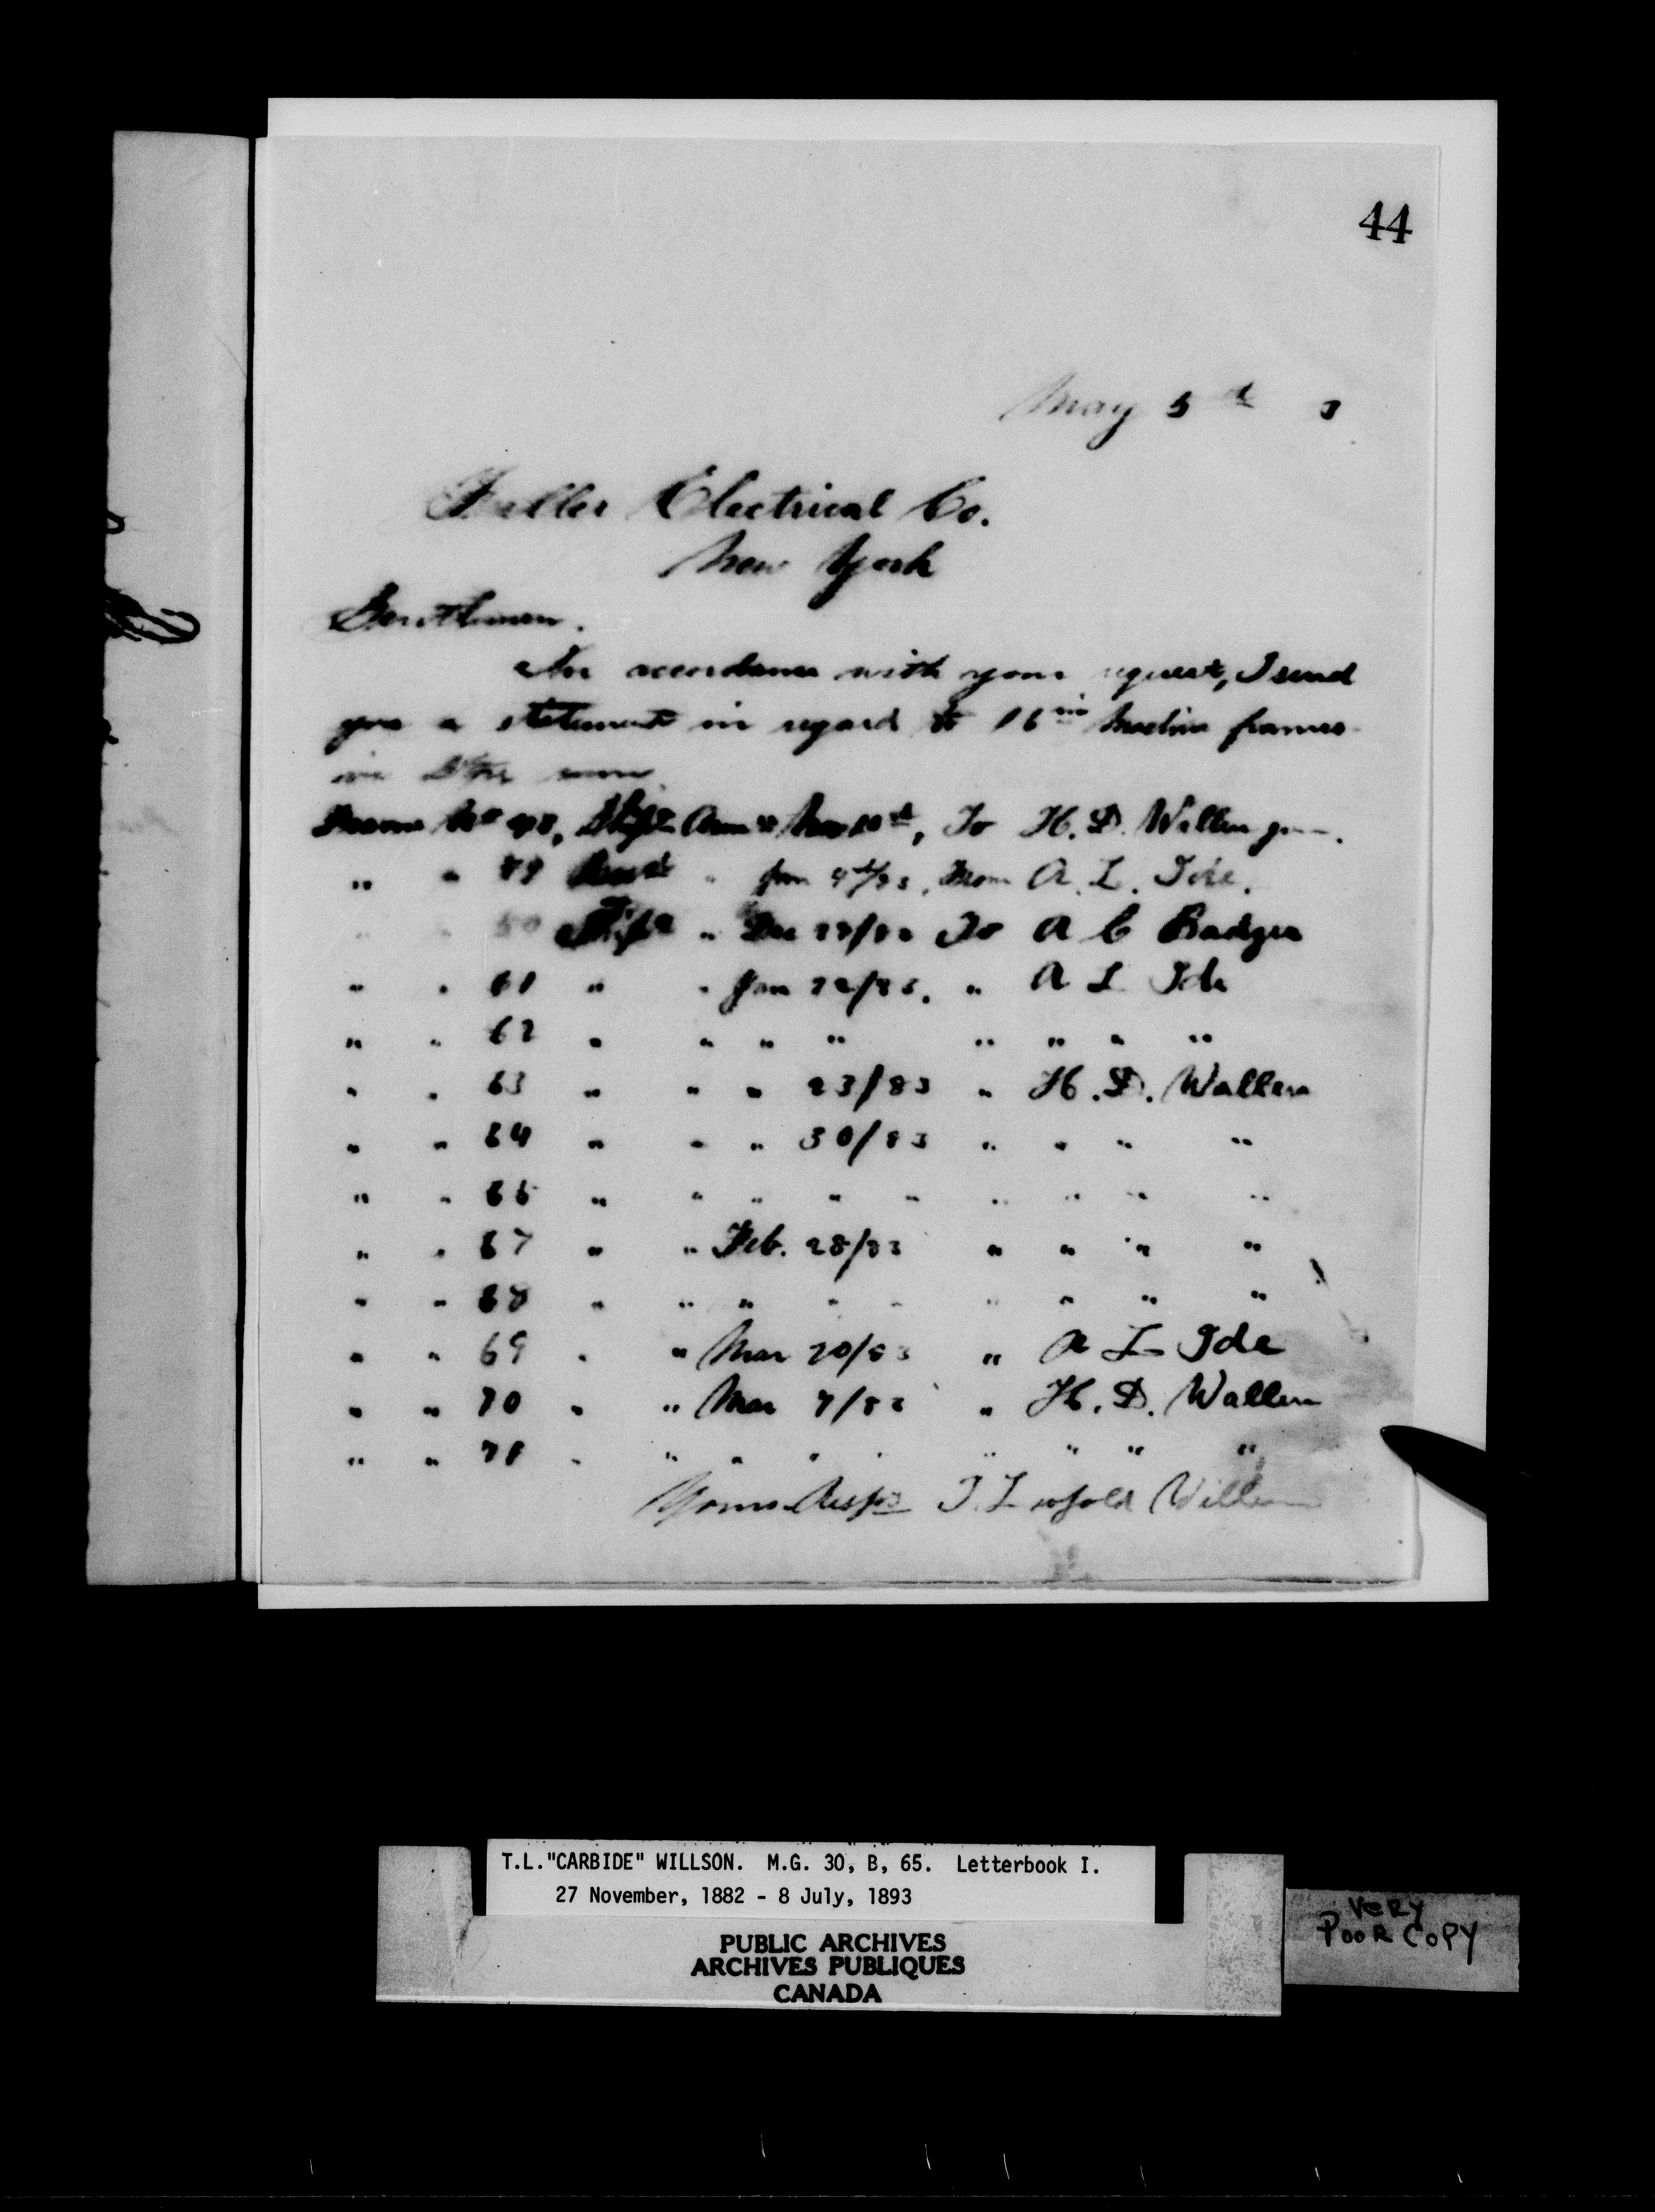 44
May 5th 3
Fuller Electrical Co.
New York
Gentlemen.
In accordance with your request, I send
you a statement in regard to 16 in Machine frames
in store room
Frame No 48, Shipd To H. D. Wallen
" " 49 " Jan 9th/83, From A. L. Ide.
" " 50 Shipd " Dec To A C Badger
" " 61 " " Jan 22/83. " A L Ide
" " 62 " " " " " " " "
" " 63 " " " 23/83 " H. D. Wallen
" " 64 " " " 30/83 " " " "
" " 65 " " " " " " " " "
" " 67 " " Feb. 28/83 " " " "
" " 68 " " " " " " " " "
" " 69 " " Mar 20/83 " A L Ide
" " 70 " " Mar 7/83 " H. D. Wallen
" " 71 " " " " " " " " "
Yours Respy T. Leopold Willson
T.L."CARBIDE" WILLSON. M.G. 30, B, 65. Letterbook I.
27 November, 1882 - 8 July, 1893
PUBLIC ARCHIVES
ARCHIVES PUBLIQUES
CANADA
VERY
POOR COPY